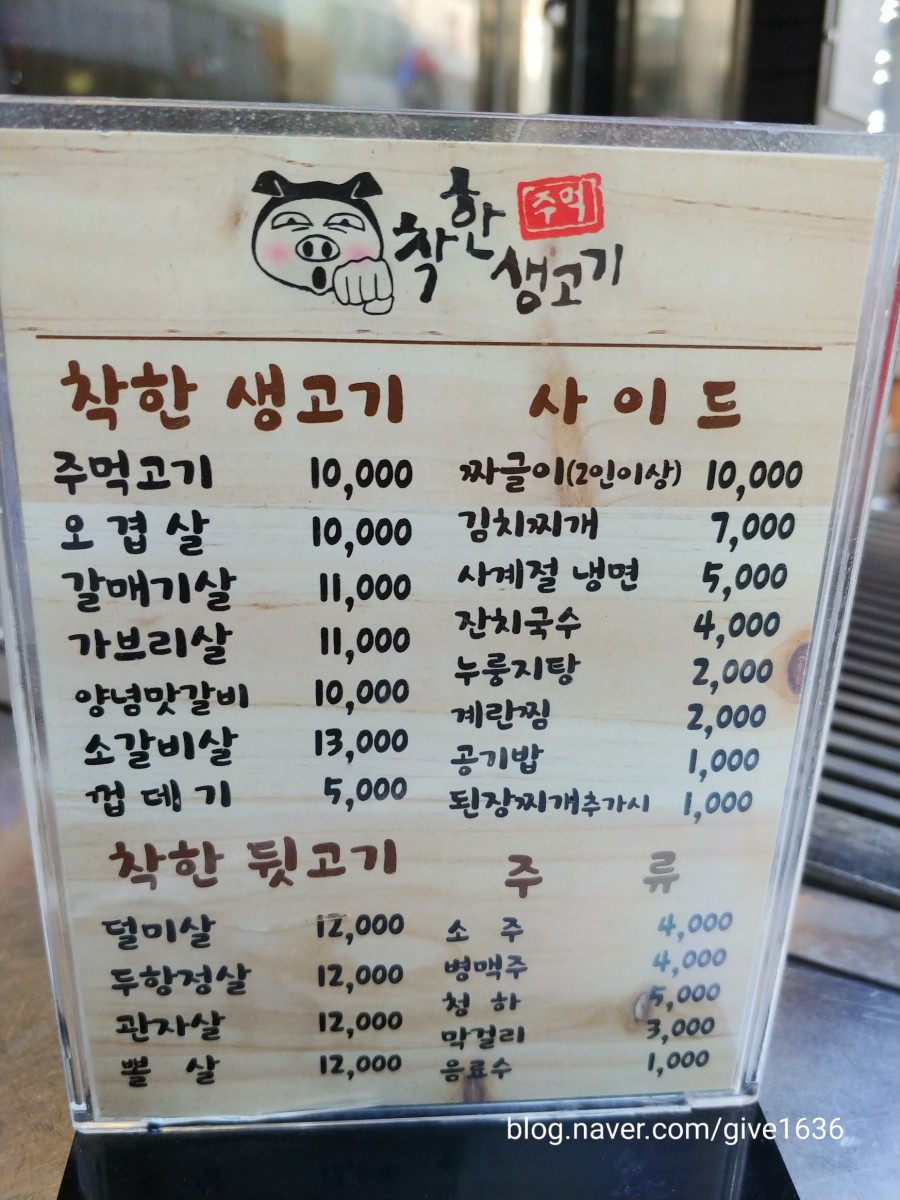 착한 주먹
생고기
착한 생고기
주먹고기 10,000
오겹살 10,000
갈매기살 11,000
가브리살 11,000
양념맛갈비 10,000
소갈비살 13,000
껍데기 5,000
사이드
짜글이(2인이상) 10,000
김치찌개 7,000
사계절 냉면 5,000
잔치국수 4,000
누룽지탕 2,000
계란찜 2,000
공기밥 1,000
된장찌개추가시 1,000
착한 뒷고기
덜미살 12,000
두항정살 12,000
관자살 12,000
뽈살 12,000
주류
소주 4,000
병맥주 4,000
청하 5,000
막걸리 3,000
음료수 1,000
blog.naver.com/give1636